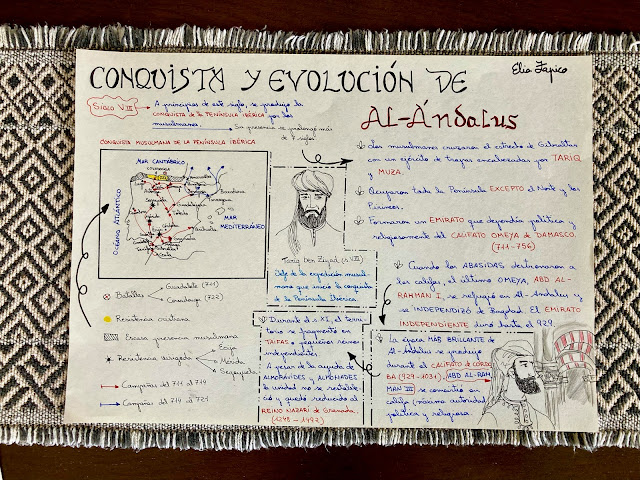 CONQUISTA Y EVOLUCIÓN DE
AL-ÁNDALUS
SIGLO VIII
A principios de este siglo, se produjo la
CONQUISTA de la PENÍNSULA IBÉRICA por los
musulmanes.
Su presencia se prolongó más
de 7 siglos.
CONQUISTA MUSULMANA DE LA PENÍNSULA IBÉRICA
MAR CANTÁBRICO
OCÉANO ATLÁNTICO
MAR
MEDITERRÁNEO
Batallas
Guadalete (711)
Covadonga (722)
Resistencia cristiana
Escasa presencia musulmana
Resistencia visigoda
Écija
Mérida
Campañas del 711 al 714
Campañas del 714 al 721
Tariq ben Ziyad (s. VIII)
Jefe de la expedición musul-
mana que inició la conquista
de la Península Ibérica.
Los musulmanes cruzaron el estrecho de Gibraltar
con un ejército de tropas encabezadas por TARIQ
y MUZA.
Ocuparon toda la Península EXCEPTO el Norte y los
Pirineos.
Formaron un EMIRATO que dependía política y
religiosamente del CALIFATO OMEYA de DAMASCO.
(711-756)
Cuando los ABASIDAS destronaron a
los califas, el último OMEYA, ABD AL-
RAHMAN I, se refugió en Al-Ándalus y
se INDEPENDIZÓ de Bagdad. El EMIRATO
INDEPENDIENTE duró hasta el 929.
La época MÁS BRILLANTE de
Al-Ándalus se produjo
durante el CALIFATO de CÓRDO
BA (929-1031). ABD AL-RAH
MAN III se convirtió en
califa (máxima autoridad
política y religiosa.
Durante el s. XI, el terri-
torio se fragmentó en
TAIFAS o pequeños reinos
independientes.
A pesar de la ayuda de
ALMORÁVIDES y ALMOHADES
la unidad no se restable-
ció y quedó reducido al
REINO NAZARÍ de Granada.
(1248-1492)